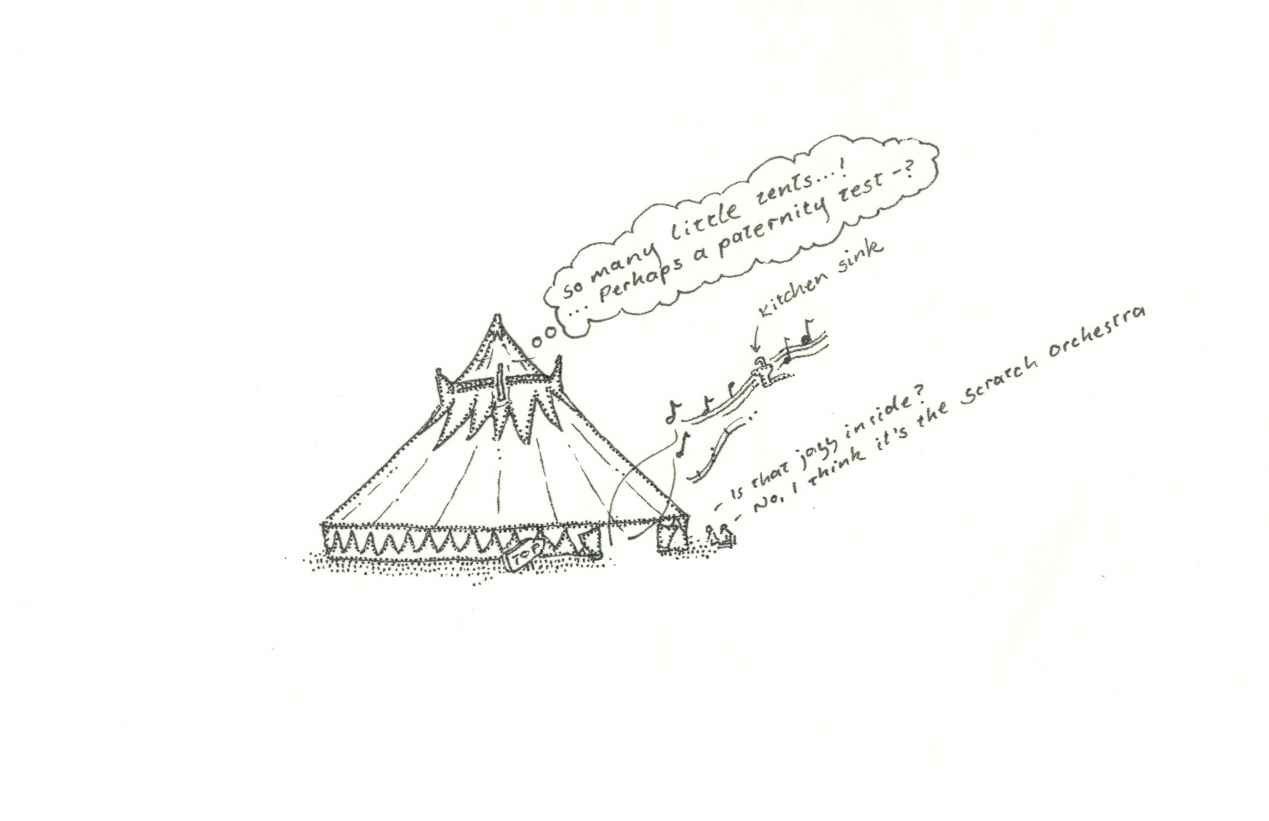 so many little tents...!
... Perhaps a paternity test -?
kitchen sink
- Is that jazz inside?
- No, I think it's the scratch orchestra
TOP